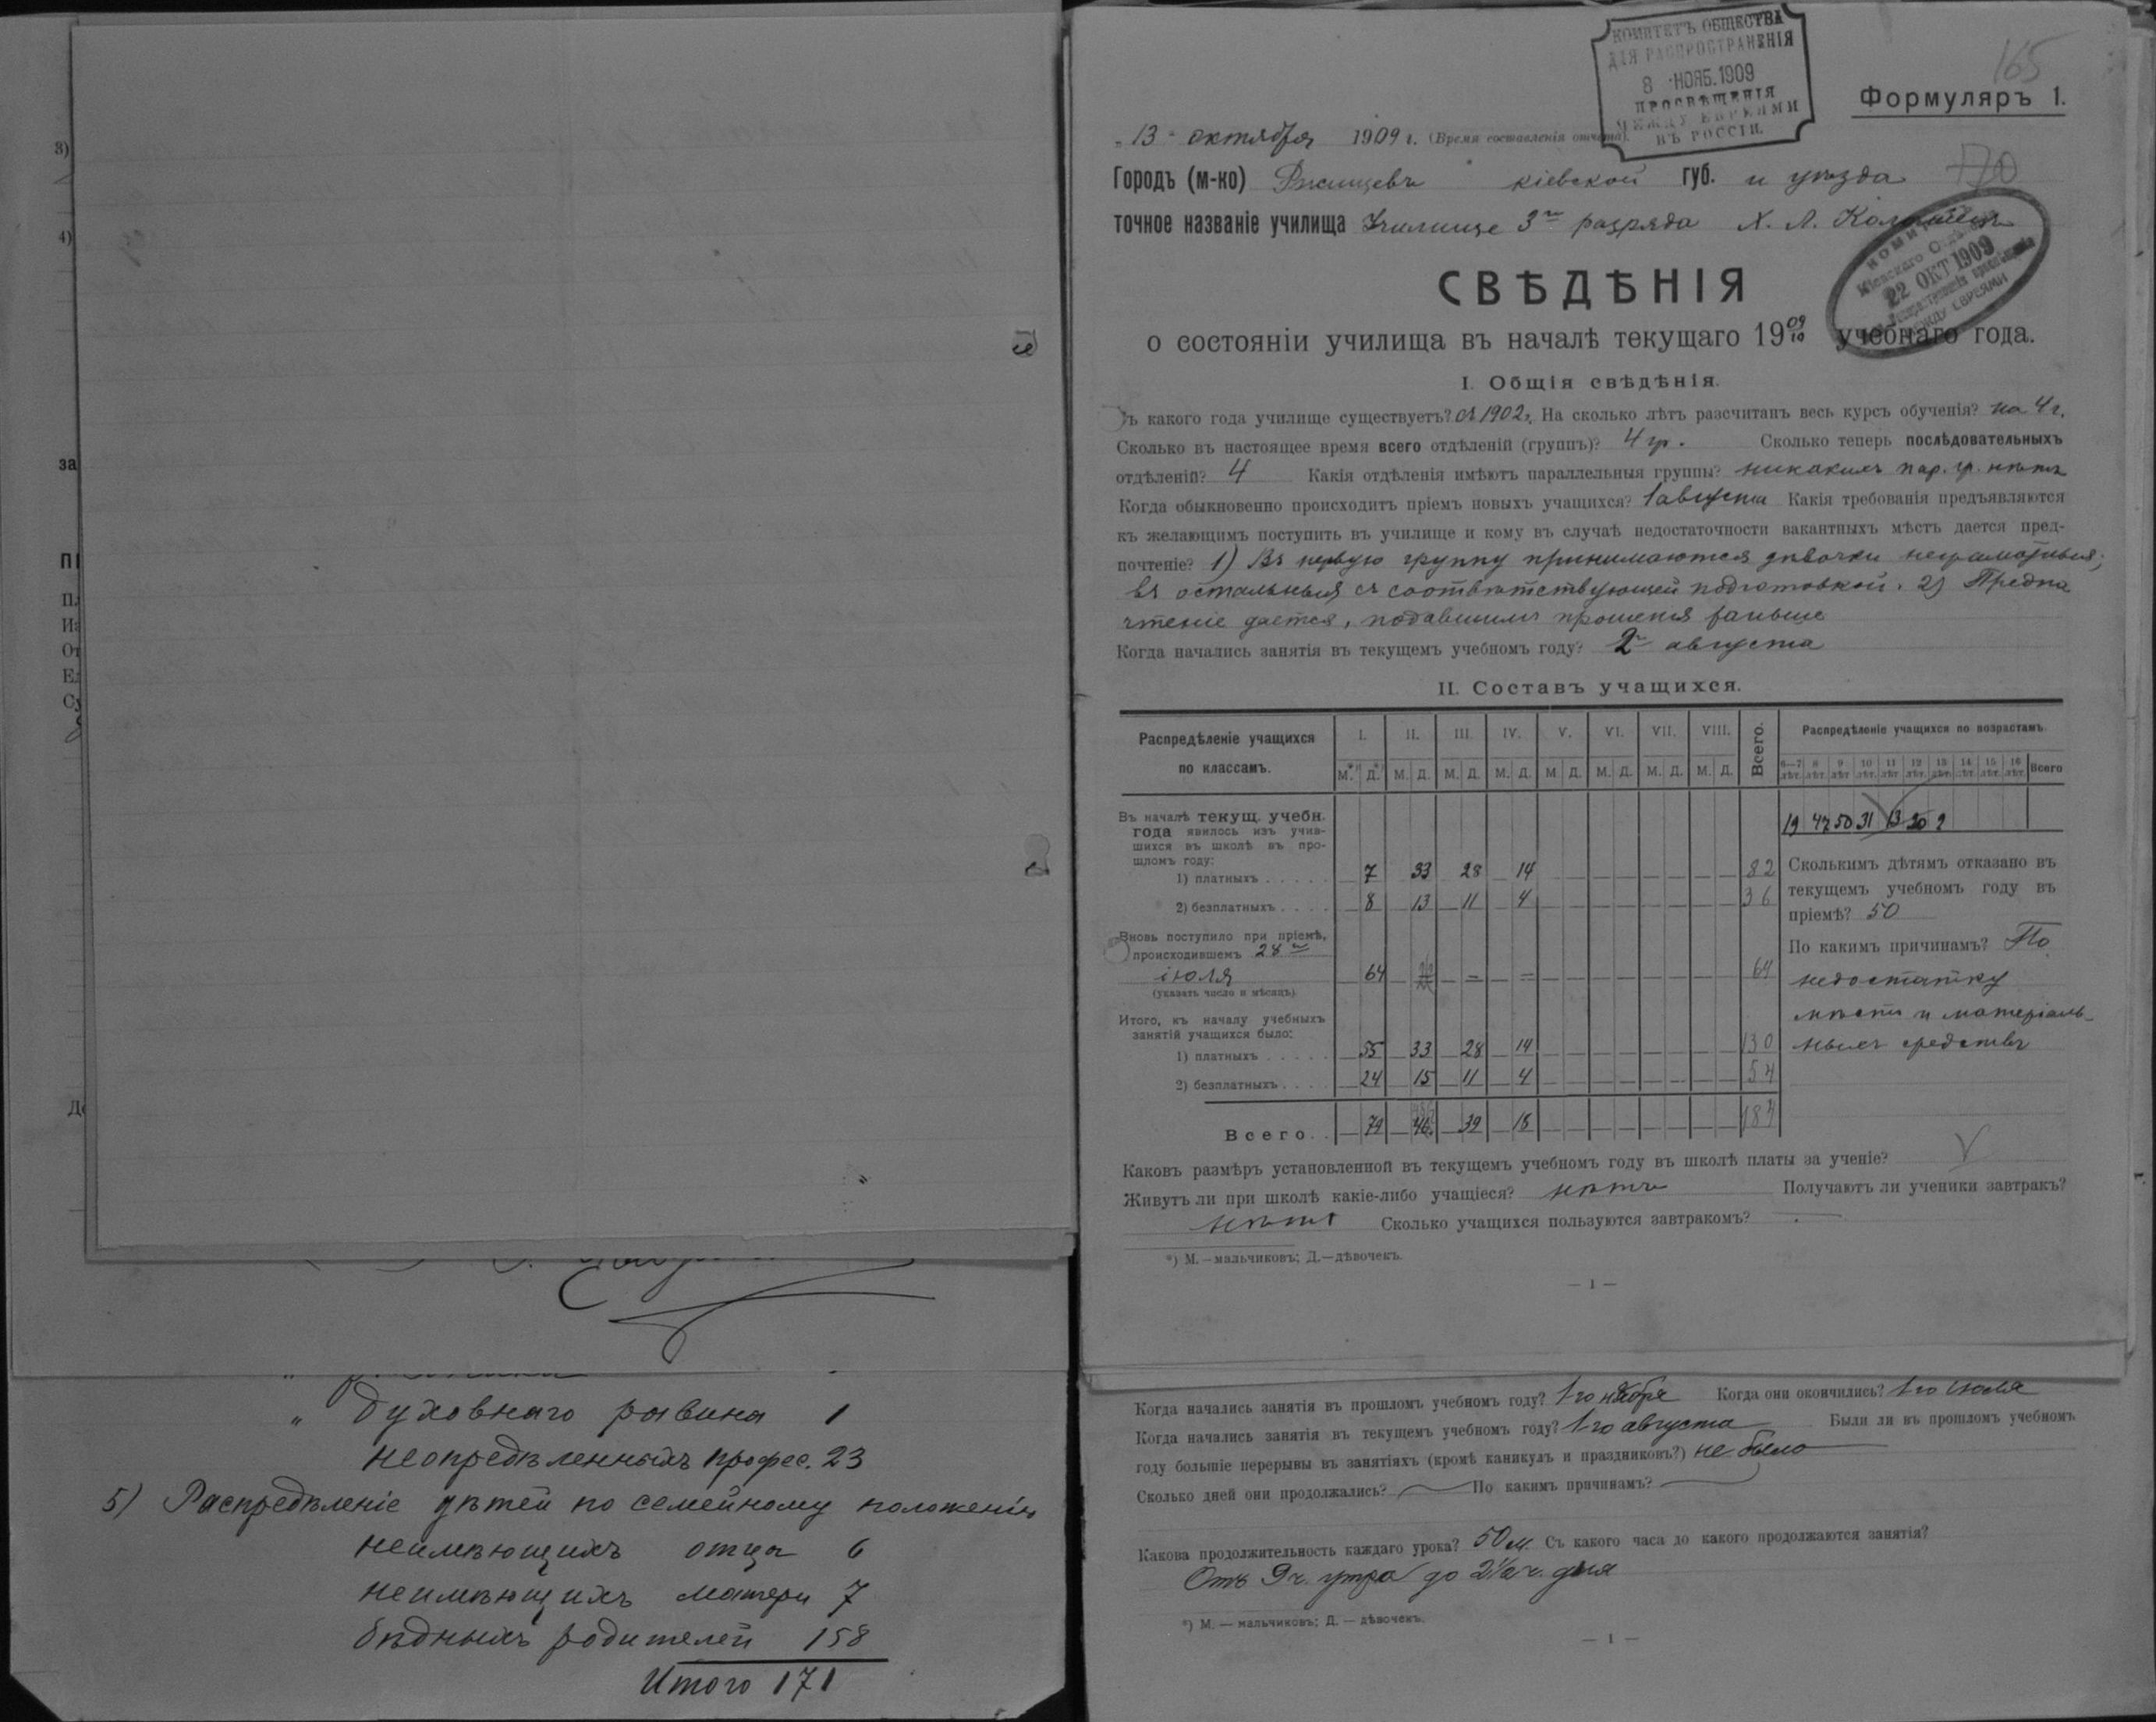 3)
4)
за
Духовнаго равина 1
неопредѣленныхъ профес. 23
5) Распредѣленіе дѣтей по семейному положенію
неимѣющихъ отца 6
неимѣющихъ матери 7
бѣдныхъ родителей 158
Итого 171
КОМИТЕТЪ ОБЩЕСТВА
ДЛЯ РАСПРОСТРАНЕНІЯ
8 НОЯБ. 1909
ПРОСВѢЩЕНІЯ
МЕЖДУ ЕВРЕЯМИ
ВЪ РОССІИ.
165
Формуляръ 1.
„13" октября 1909 г. (Время составленія отчета).
Городъ (м-ко) Ржищевъ кіевской губ. и уѣзда
точное названіе училища Училище 3го разряда Х. Л.
22 ОКТ 1909
СВѢДѢНІЯ
о состояніи училища въ началѣ текущаго 1909/10 учебнаго года.
I. Общія свѣдѣнія.
Съ какого года училище существуетъ? съ 1902 г. На сколько лѣтъ разсчитанъ весь курсъ обученія? на 4 г.
Сколько въ настоящее время всего отдѣленій (группъ)? 4 гр. Сколько теперь послѣдовательныхъ
отдѣленій? 4 Какія отдѣленія имѣютъ параллельныя группы? никакихъ пар. гр. нѣтъ
Когда обыкновенно происходитъ пріемъ новыхъ учащихся? 1 августа Какія требованія предъявляются
къ желающимъ поступить въ училище и кому въ случаѣ недостаточности вакантныхъ мѣстъ дается пред-
почтеніе? 1) Въ первую группу принимаются дѣвочки неграмотныя;
въ остальныя съ соотвѣтствующей подготовкой. 2) Предпо
чтеніе дается, подавшимъ прошенія раньше
Когда начались занятія въ текущемъ учебномъ году? 2го августа
II. Составъ учащихся.
Распредѣленіе учащихся по классамъ. I. II. III. IV. V. VI. VII. VIII. Всего. Распредѣленіе учащихся по возрастамъ.
М.*) Д.*) М. Д. М. Д. М. Д. М Д. М. Д. М. Д. М. Д. 6—7 лѣт. 8 лѣт. 9 лѣт 10 лѣт. 11 лѣт 12 лѣт. 13 лѣт. 14 лѣт. 15 лѣт. 16 лѣт. Всего
Въ началѣ текущ. учебн.
года явилось изъ учив-
шихся въ школѣ въ про-
шломъ году:
1) платныхъ 7 33 28 14 82
2) безплатныхъ 8 13 11 4 36
Вновь поступило при пріемѣ,
происходившемъ 28го
іюля 64 64
(указать число и мѣсяцъ)
Итого, къ началу учебныхъ
занятій учащихся было:
1) платныхъ 55 33 28 14 130
2) безплатныхъ 24 15 11 4 54
Всего 79 39 18 184
19 47 50 31 13 2
Сколькимъ дѣтямъ отказано въ
текущемъ учебномъ году въ
пріемѣ? 50
По какимъ причинамъ? По
недостатку
мѣста и матеріаль-
ныхъ средствъ
Каковъ размѣръ установленной въ текущемъ учебномъ году въ школѣ платы за ученіе?
Живутъ ли при школѣ какіе-либо учащіеся? нѣтъ Получаютъ ли ученики завтракъ?
нѣтъ Сколько учащихся пользуются завтракомъ?
*) М.—мальчиковъ; Д.—дѣвочекъ.
— 1 —
Когда начались занятія въ прошломъ учебномъ году? 1-го ноября Когда они окончились? 1-го іюля
Когда начались занятія въ текущемъ учебномъ году? 1-го августа Были ли въ прошломъ учебномъ
году большіе перерывы въ занятіяхъ (кромѣ каникулъ и праздниковъ?) не было
Сколько дней они продолжались? — По какимъ причинамъ? —
Какова продолжительность каждаго урока? 50 м. Съ какого часа до какого продолжаются занятія?
Отъ 9 ч. утра до 2½ ч. дня
*) М. — мальчиковъ; Д. — дѣвочекъ.
— 1 —